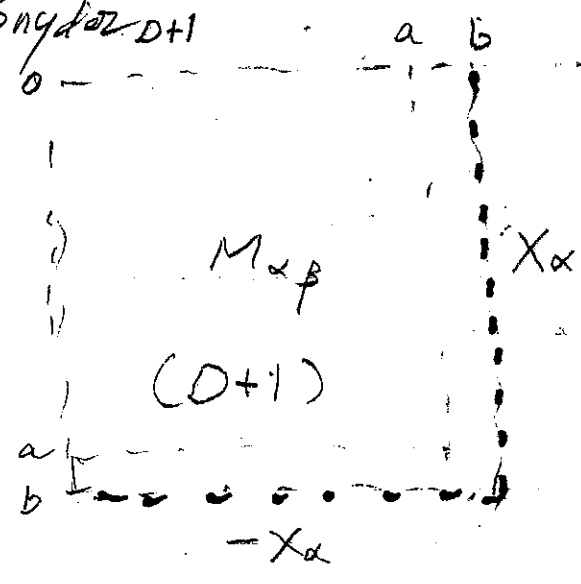 Snyder D+1
a b
0
M αβ
Xα
(D+1)
a
b
-Xα